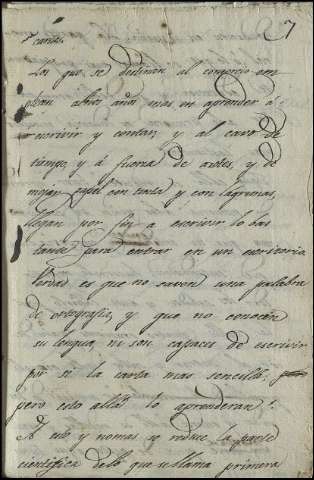 7
carios.
Los que se destinan al comercio em
plean años mas en aprender a
escrivir y contar; y al cavo de
tiempo, y á fuerza de azotes, y de
mojar papel con tinta y con lagrimas,
llegan por fin a escrivir lo bas
tante para entrar en un escritorio
Verdad es que no saven una palabra
de ortografia, y que no conocen
su lengua, ni son capaces de escrivir
por si la carta mas sencilla,
pero esto allá lo aprenderan!
A esto y nomas se reduce la parte
cientifica delo que se llama primera